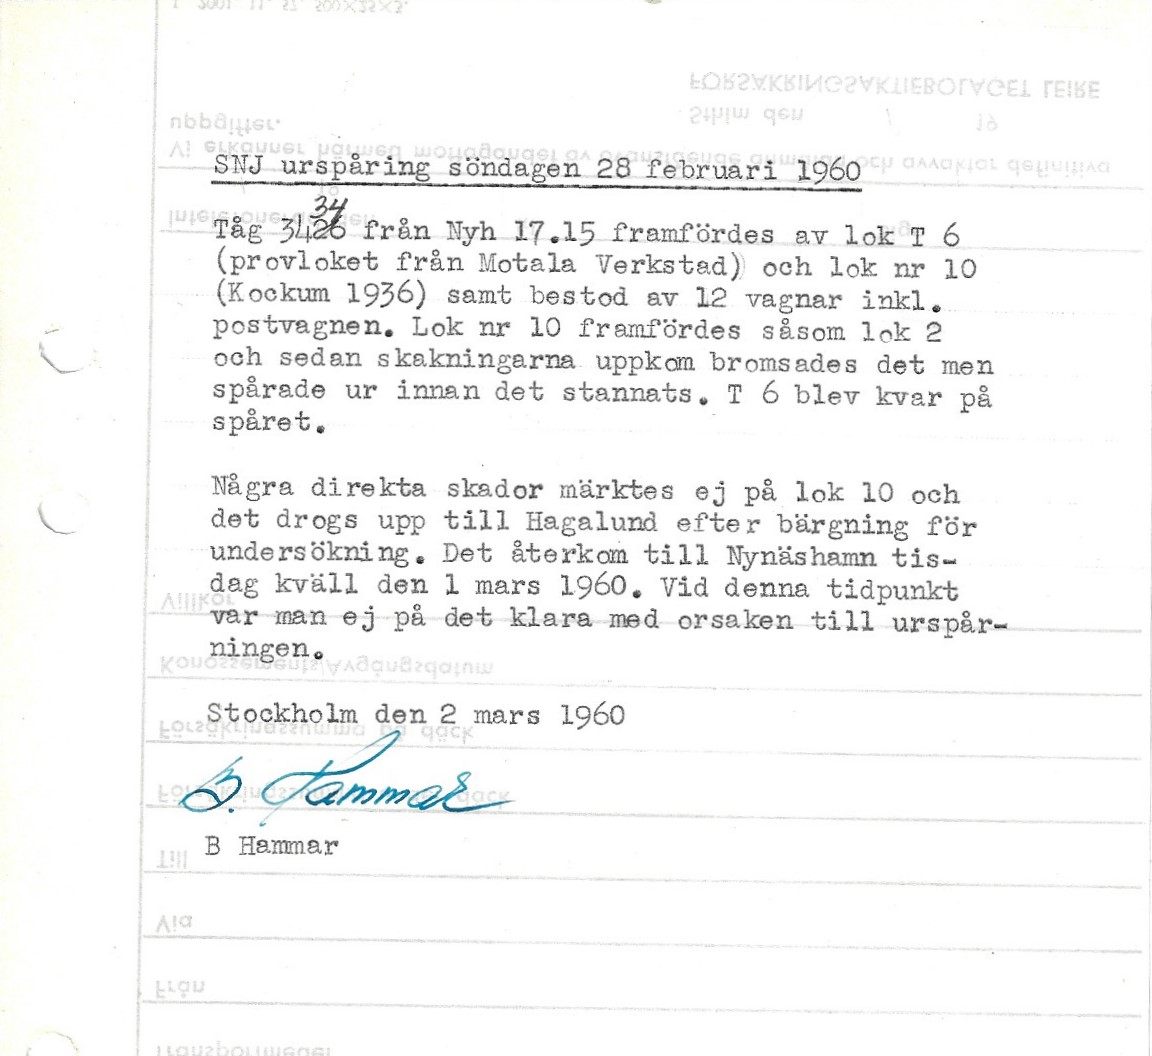 SNJ urspåring söndagen 28 februari 1960
34
Tåg 3426 från Nyh 17.15 framfördes av lok T 6
(provloket från Motala Verkstad) och lok nr 10
(Kockum 1936) samt bestod av 12 vagnar inkl.
postvagnen. Lok nr 10 framfördes såsom lok 2
och sedan skakningarna uppkom bromsades det men
spårade ur innan det stannats. T 6 blev kvar på
spåret.
Några direkta skador märktes ej på lok 10 och
det drogs upp till Hagalund efter bärgning för
undersökning. Det återkom till Nynäshamn tis-
dag kväll den 1 mars 1960. Vid denna tidpunkt
var man ej på det klara med orsaken till urspår-
ningen.
Stockholm den 2 mars 1960
B. Hammar
B Hammar
FÖRSÄKRINGSAKTIEBOLAGET LEIRE
Sthlm den / 19
uppgifter.
Villkor
Konossements/Avgångsdatum
Försäkringssumma på däck
Till
Via
Från
Transportmedel